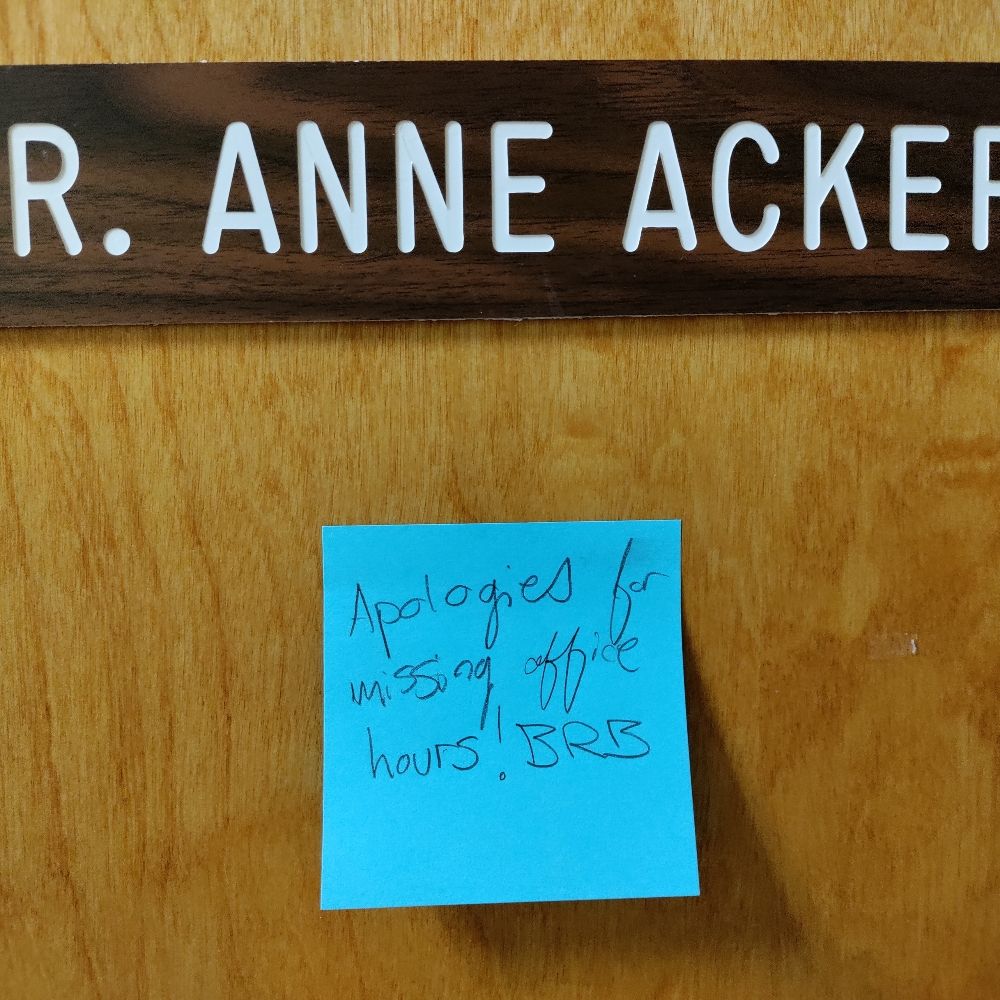 R. ANNE ACKER
Apologies for
missing office
hours! BRB